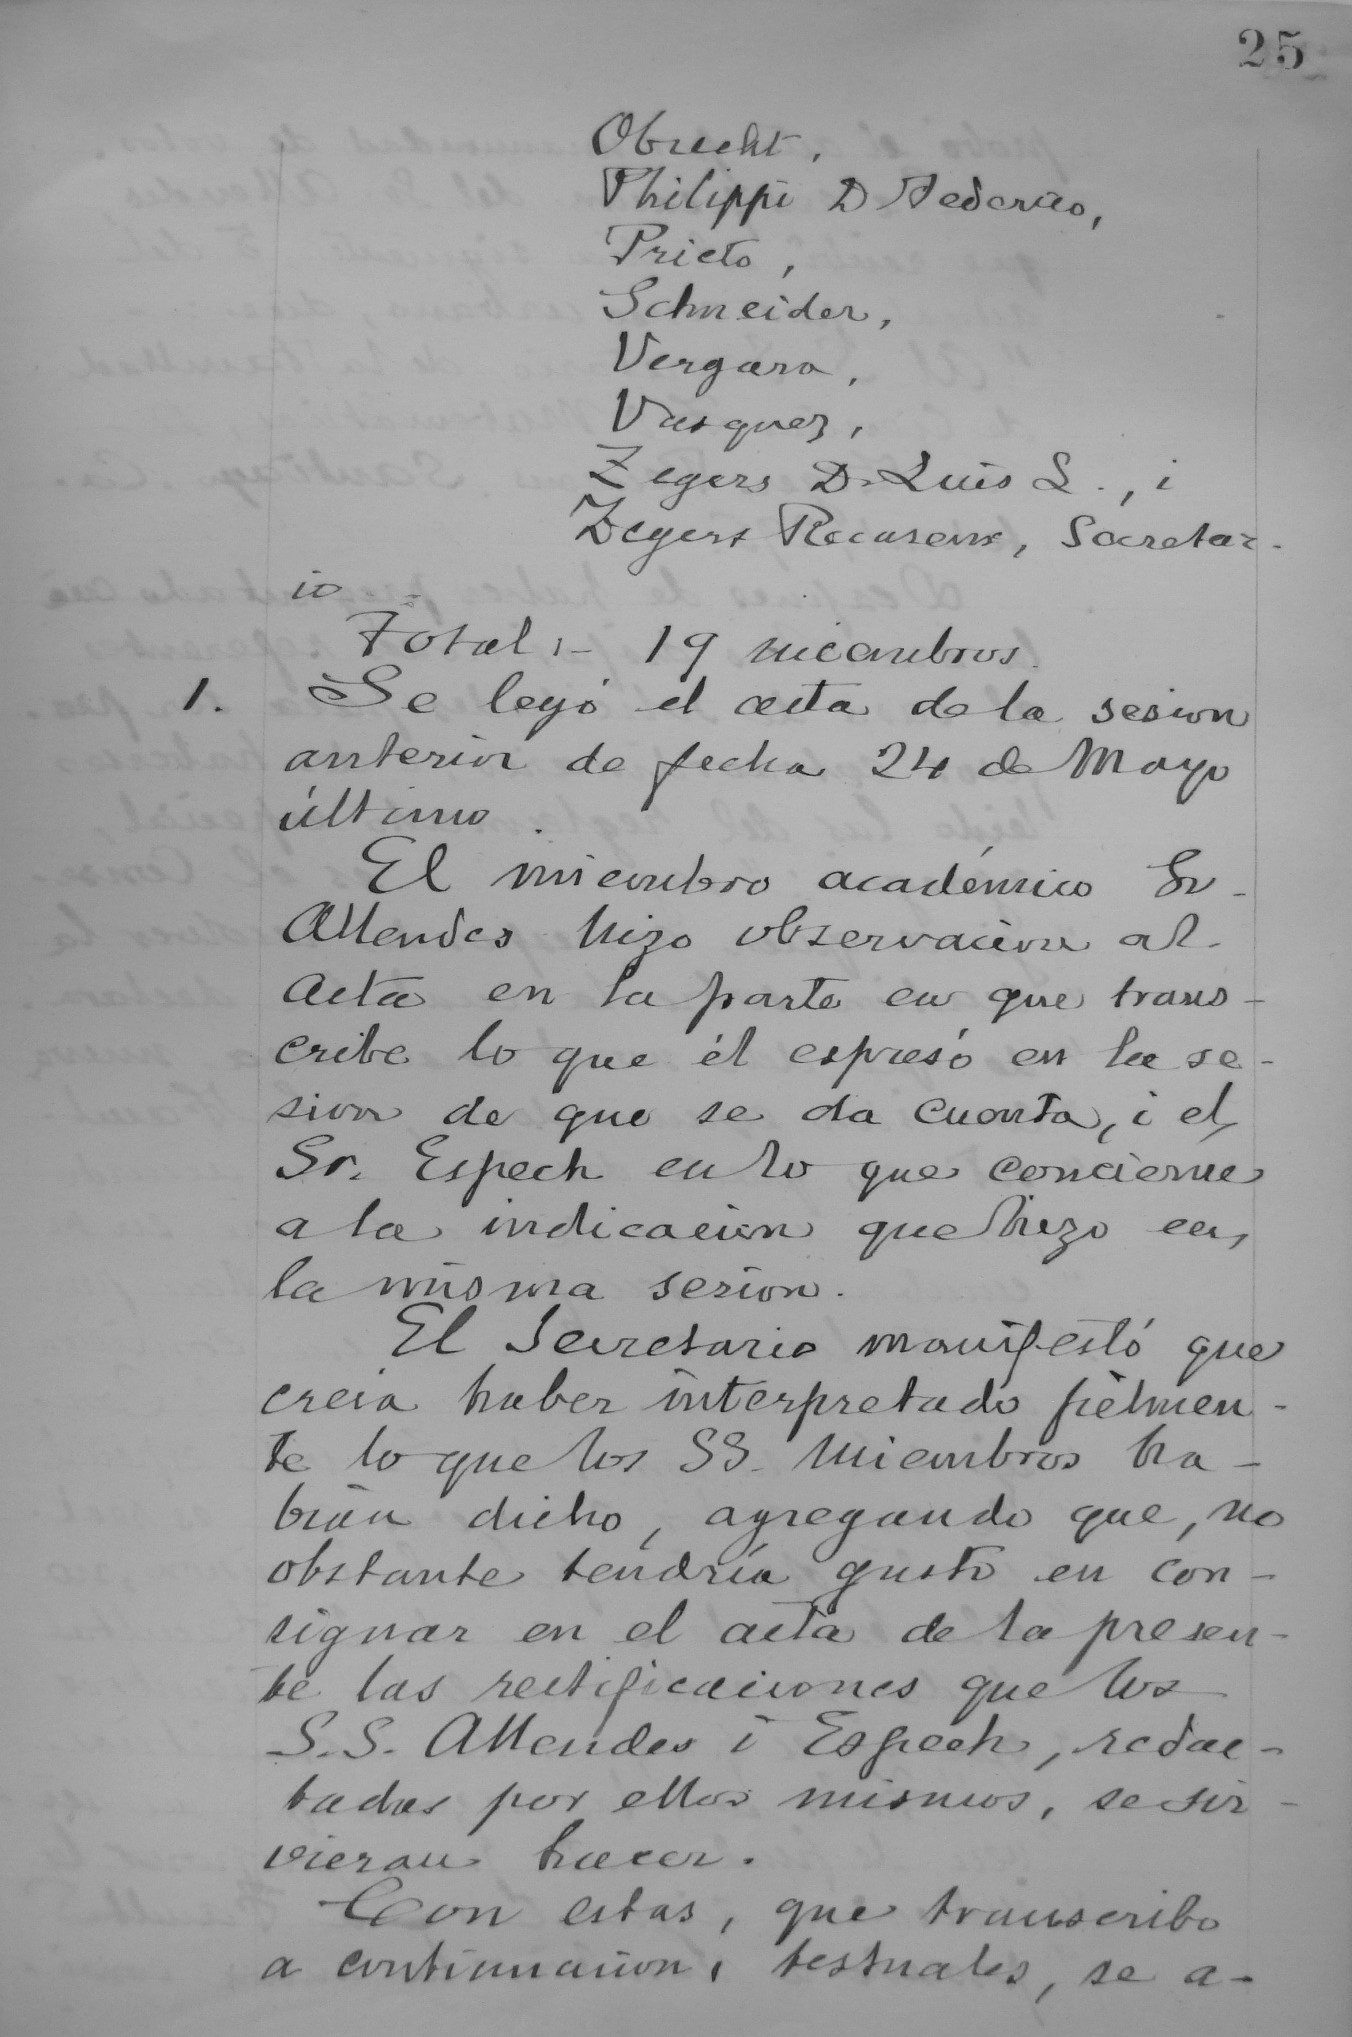 25
Obrecht,
Philippi D Federico,
Prieto,
Schneider,
Vergara,
Vasquez,
Zegers D. Luis L., i
Zegers Recasens, Secretar-
io
Total:- 19 miembros.
1. Se leyó el acta de la sesion
anterior de fecha 24 de Mayo
último.
El miembro académico Sr.
Allendes hizo observacion al
acta en la parte en que trans-
cribe lo que él espresó en la se-
sion de que se da cuenta, i el
Sr. Espech en lo que concierne
a la indicacion que hizo en
la misma sesion.
El Secretario manifestó que
creia haber interpretado fielmen-
te lo que los SS. miembros ha-
bian dicho, agregando que, no
obstante tendría gusto en con-
signar en el acta de la presen-
te las rectificaciones que los
S.S. Allendes i Espech, redac-
tadas por ellos mismos, se sir-
vieran hacer.
Con estas, que transcribo
a continuacion, testuales, se a-